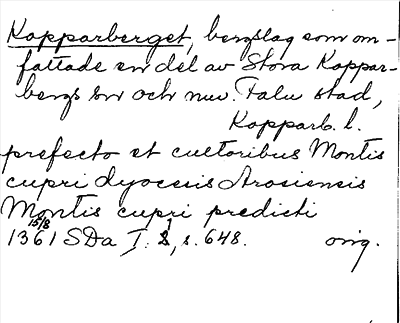 Kopparberget, bergslag som om-
fattade en del av Stora Koppar-
bergs sn och nuv. Falu stad,
Kopparb. l.
prefecto et cultoribus Montis
cupri dyocesis Arosiensis
Montis cupri predicti
15/8
1361 SDa I. 1, s. 648. orig.